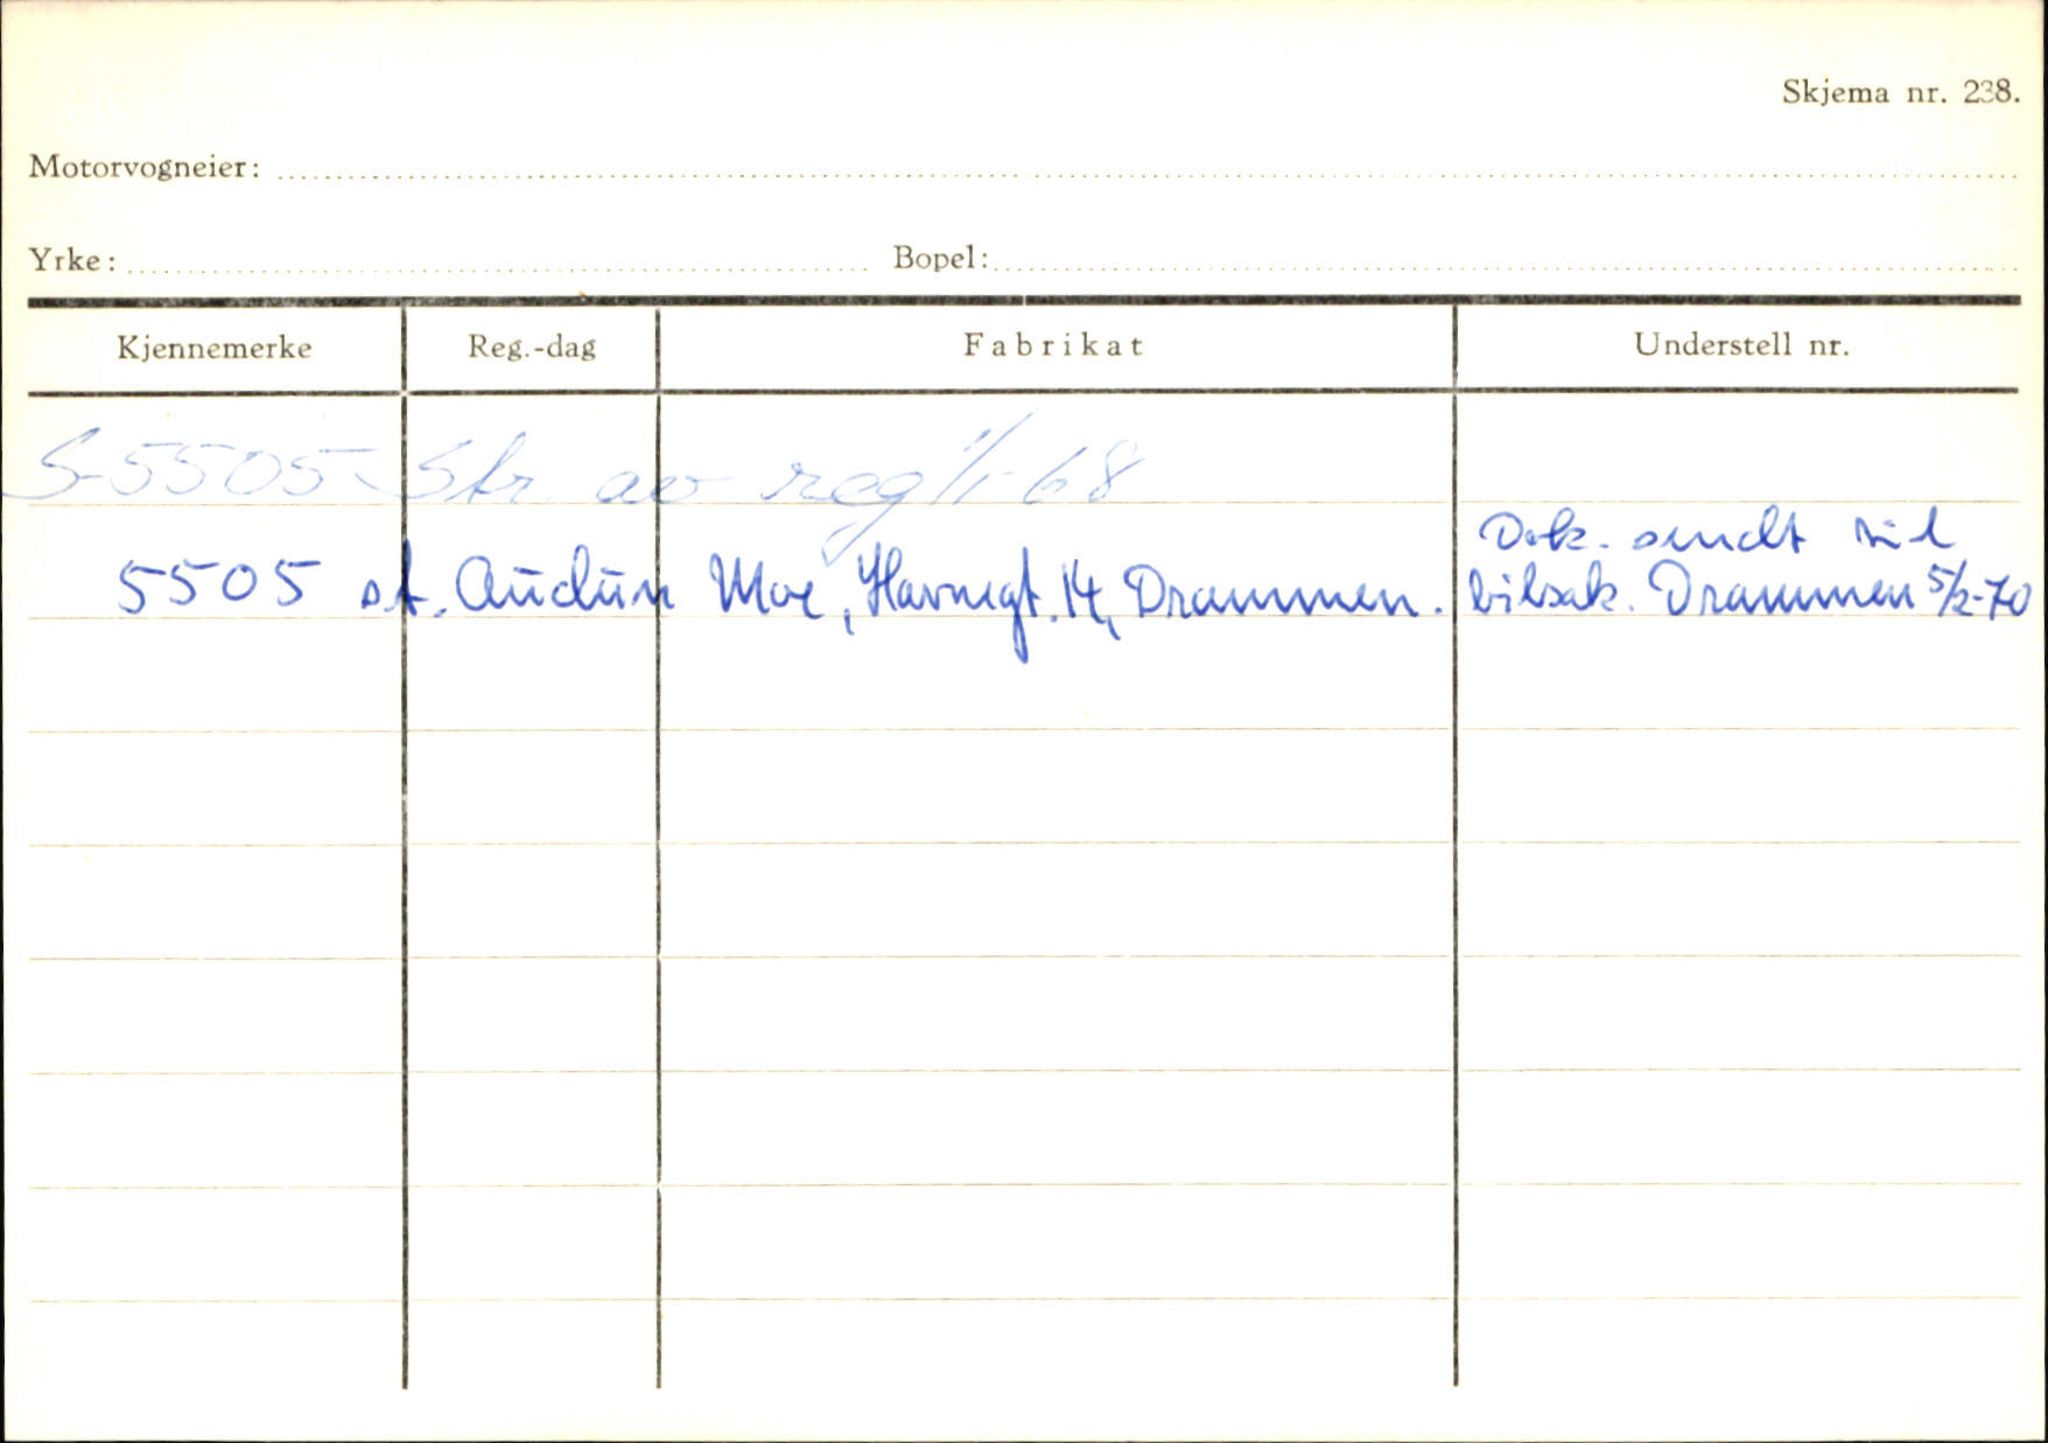 Skjema nr. 238.
Motorvogneier:
Yrke: Bopel:
Kjennemerke Reg.-dag Fabrikat Understell nr.
S-5505 Str. av reg 1/1-68
5505 st. Audun Moe, Havnegt. 14, Drammen. Dok. sendt til
bilsak. Drammen 5/2-70